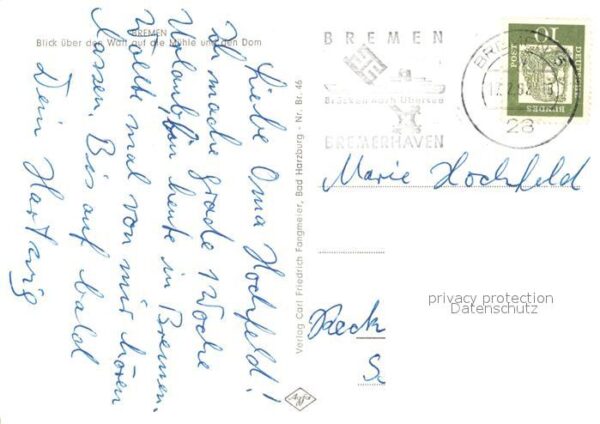 BREMEN
Blick über den Wall auf die Mühle und den Dom
Liebe Oma Hochfeld!
Ich mache grade 1 Woche
Urlaub, bin heute in Bremen.
Wollte mal von mir hören
lassen. Bis auf bald
Dein Hartwig
Verlag Carl Friedrich Fangmeier, Bad Harzburg - Nr. Br. 46
Agfa
BREMEN
Brücken nach Übersee
BREMERHAVEN
BREMEN 5
28
10
DEUTSCHE
BUNDES
POST
Marie Hochfeld
privacy protection
Datenschutz
Reck
S